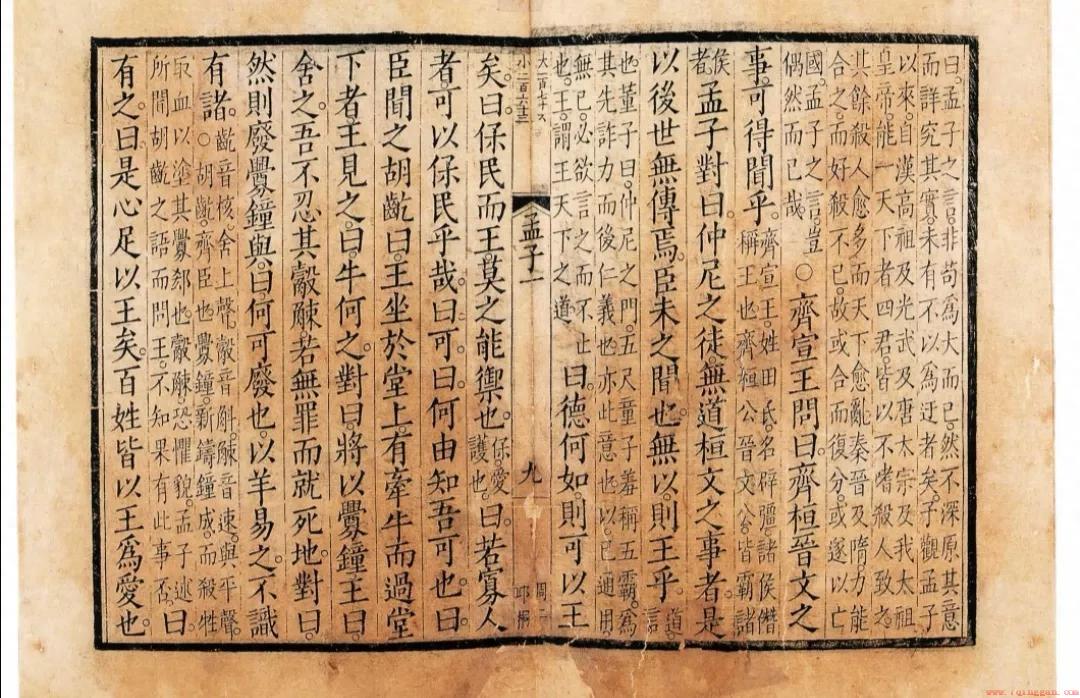 曰。孟子之言。非苟為大而已。然不深原其意
而詳究其實。未有不以為迂者矣。予觀孟子
以來。自漢高祖及光武及唐太宗及我太祖
皇帝。能一天下者四君。皆以不嗜殺人致之。
其餘殺人愈多而天下愈亂。秦晉及隋。力能
合之。而好殺不已。故或合而復分。或遂以亡
國。孟子之言。豈偶然而已哉。○齊宣王問曰。齊桓晉文之
事。可得聞乎。齊宣王。姓田氏。名辟彊。諸侯僭稱王也。齊桓公晉文公。皆霸諸
侯者。孟子對曰。仲尼之徒。無道桓文之事者。是
以後世無傳焉。臣未之聞也。無以。則王乎。道。言
也。董子曰。仲尼之門。五尺童子羞稱五霸。為
其先詐力而後仁義也。亦此意也。以已通用。
無已。必欲言之而不止也。王。謂王天下之道。曰。德何如。則可以王
孟子一
九
矣。曰。保民而王。莫之能禦也。保。愛護也。曰。若寡人
者。可以保民乎哉。曰。可。曰。何由知吾可也。曰。
臣聞之胡齕曰。王坐於堂上。有牽牛而過堂
下者。王見之。曰。牛何之。對曰。將以釁鐘。王曰。
舍之。吾不忍其觳觫。若無罪而就死地。對曰。
然則廢釁鐘與。曰。何可廢也。以羊易之。不識
有諸。齕音核。舍上聲。觳音斛。觫音速。與平聲。○胡齕。齊臣也。釁鐘。新鑄鐘成。而殺牲
取血以塗其釁郤也。觳觫。恐懼貌。孟子述
所聞胡齕之語而問王。不知果有此事否。曰。
有之。曰。是心足以王矣。百姓皆以王為愛也。
www.7qinggan.com